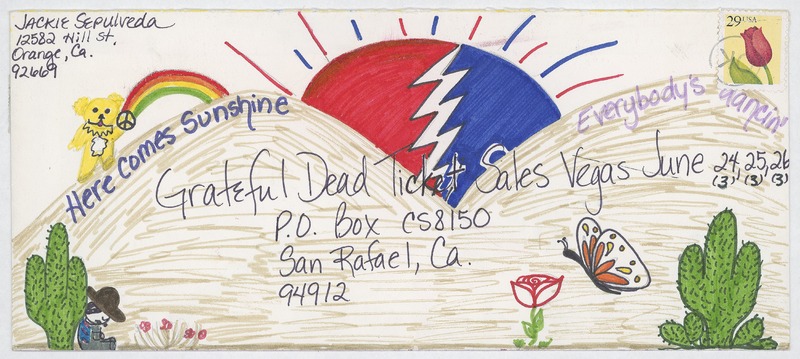 JACKIE SEPULVEDA
12582 Hill St.
Orange, Ca.
92669
29 USA
Here comes Sunshine
Everybody's dancin'
Grateful Dead Ticket Sales Vegas June 24, 25, 26
(3) (3) (3)
P.O. Box CS8150
San Rafael, Ca.
94912